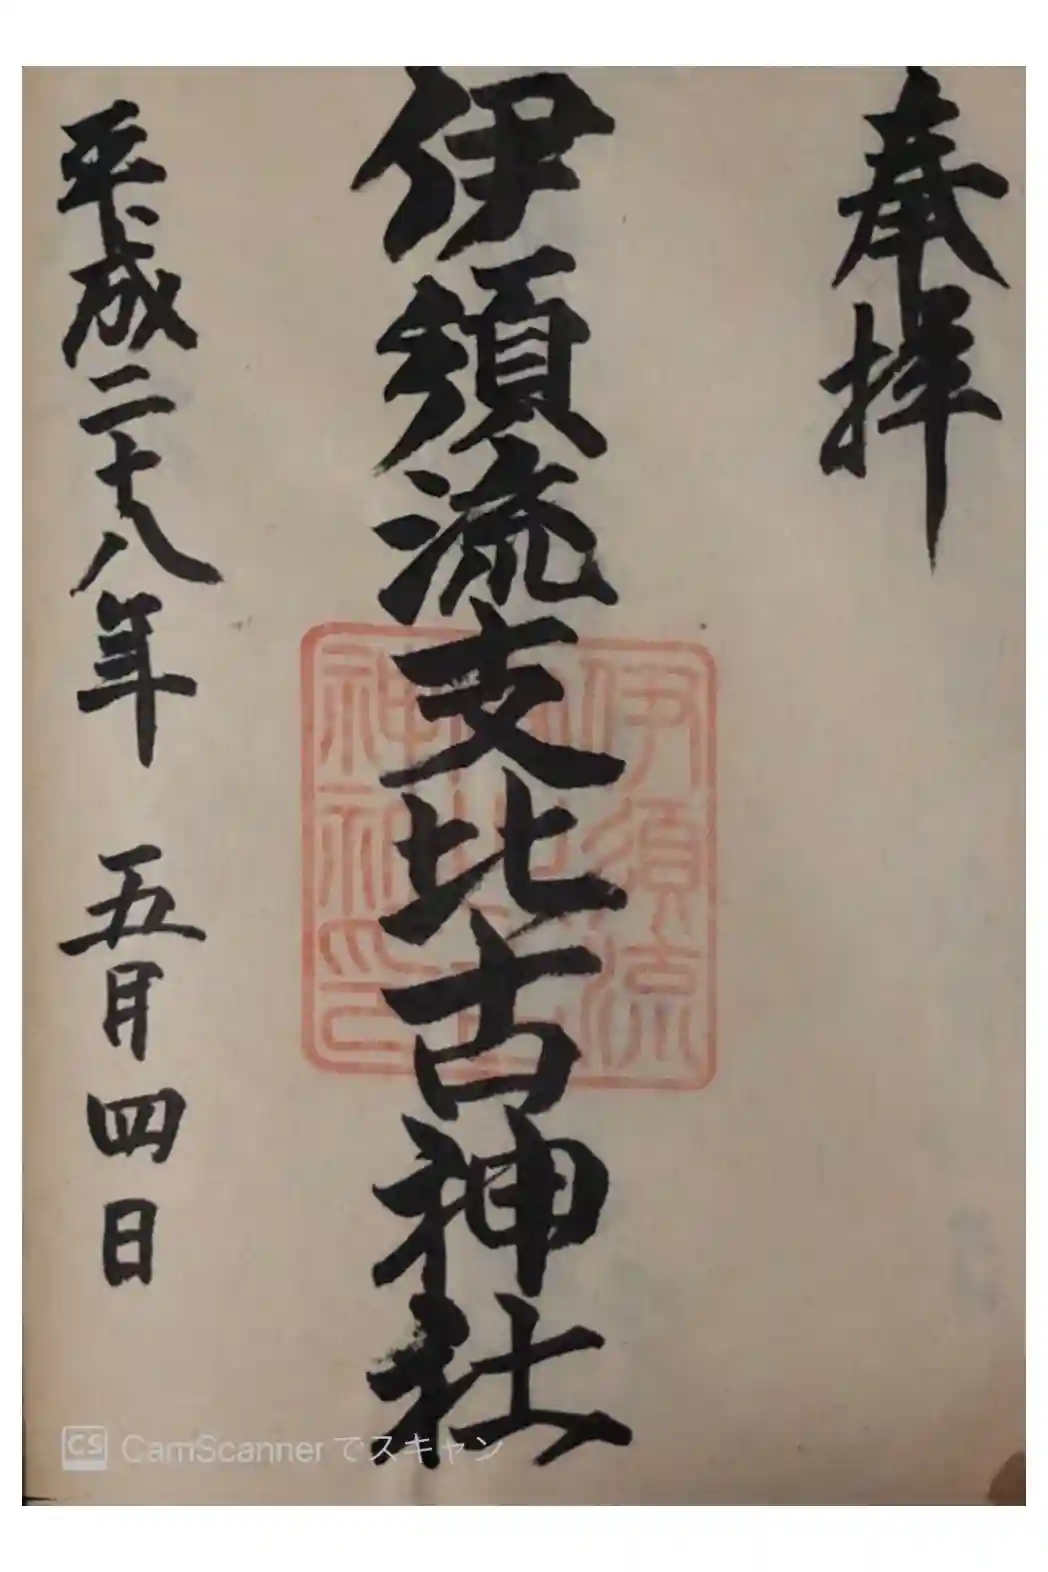 奉拝
伊須流支比古神社
平成二十八年 五月四日
伊須流
神社印
CS CamScanner でスキャン